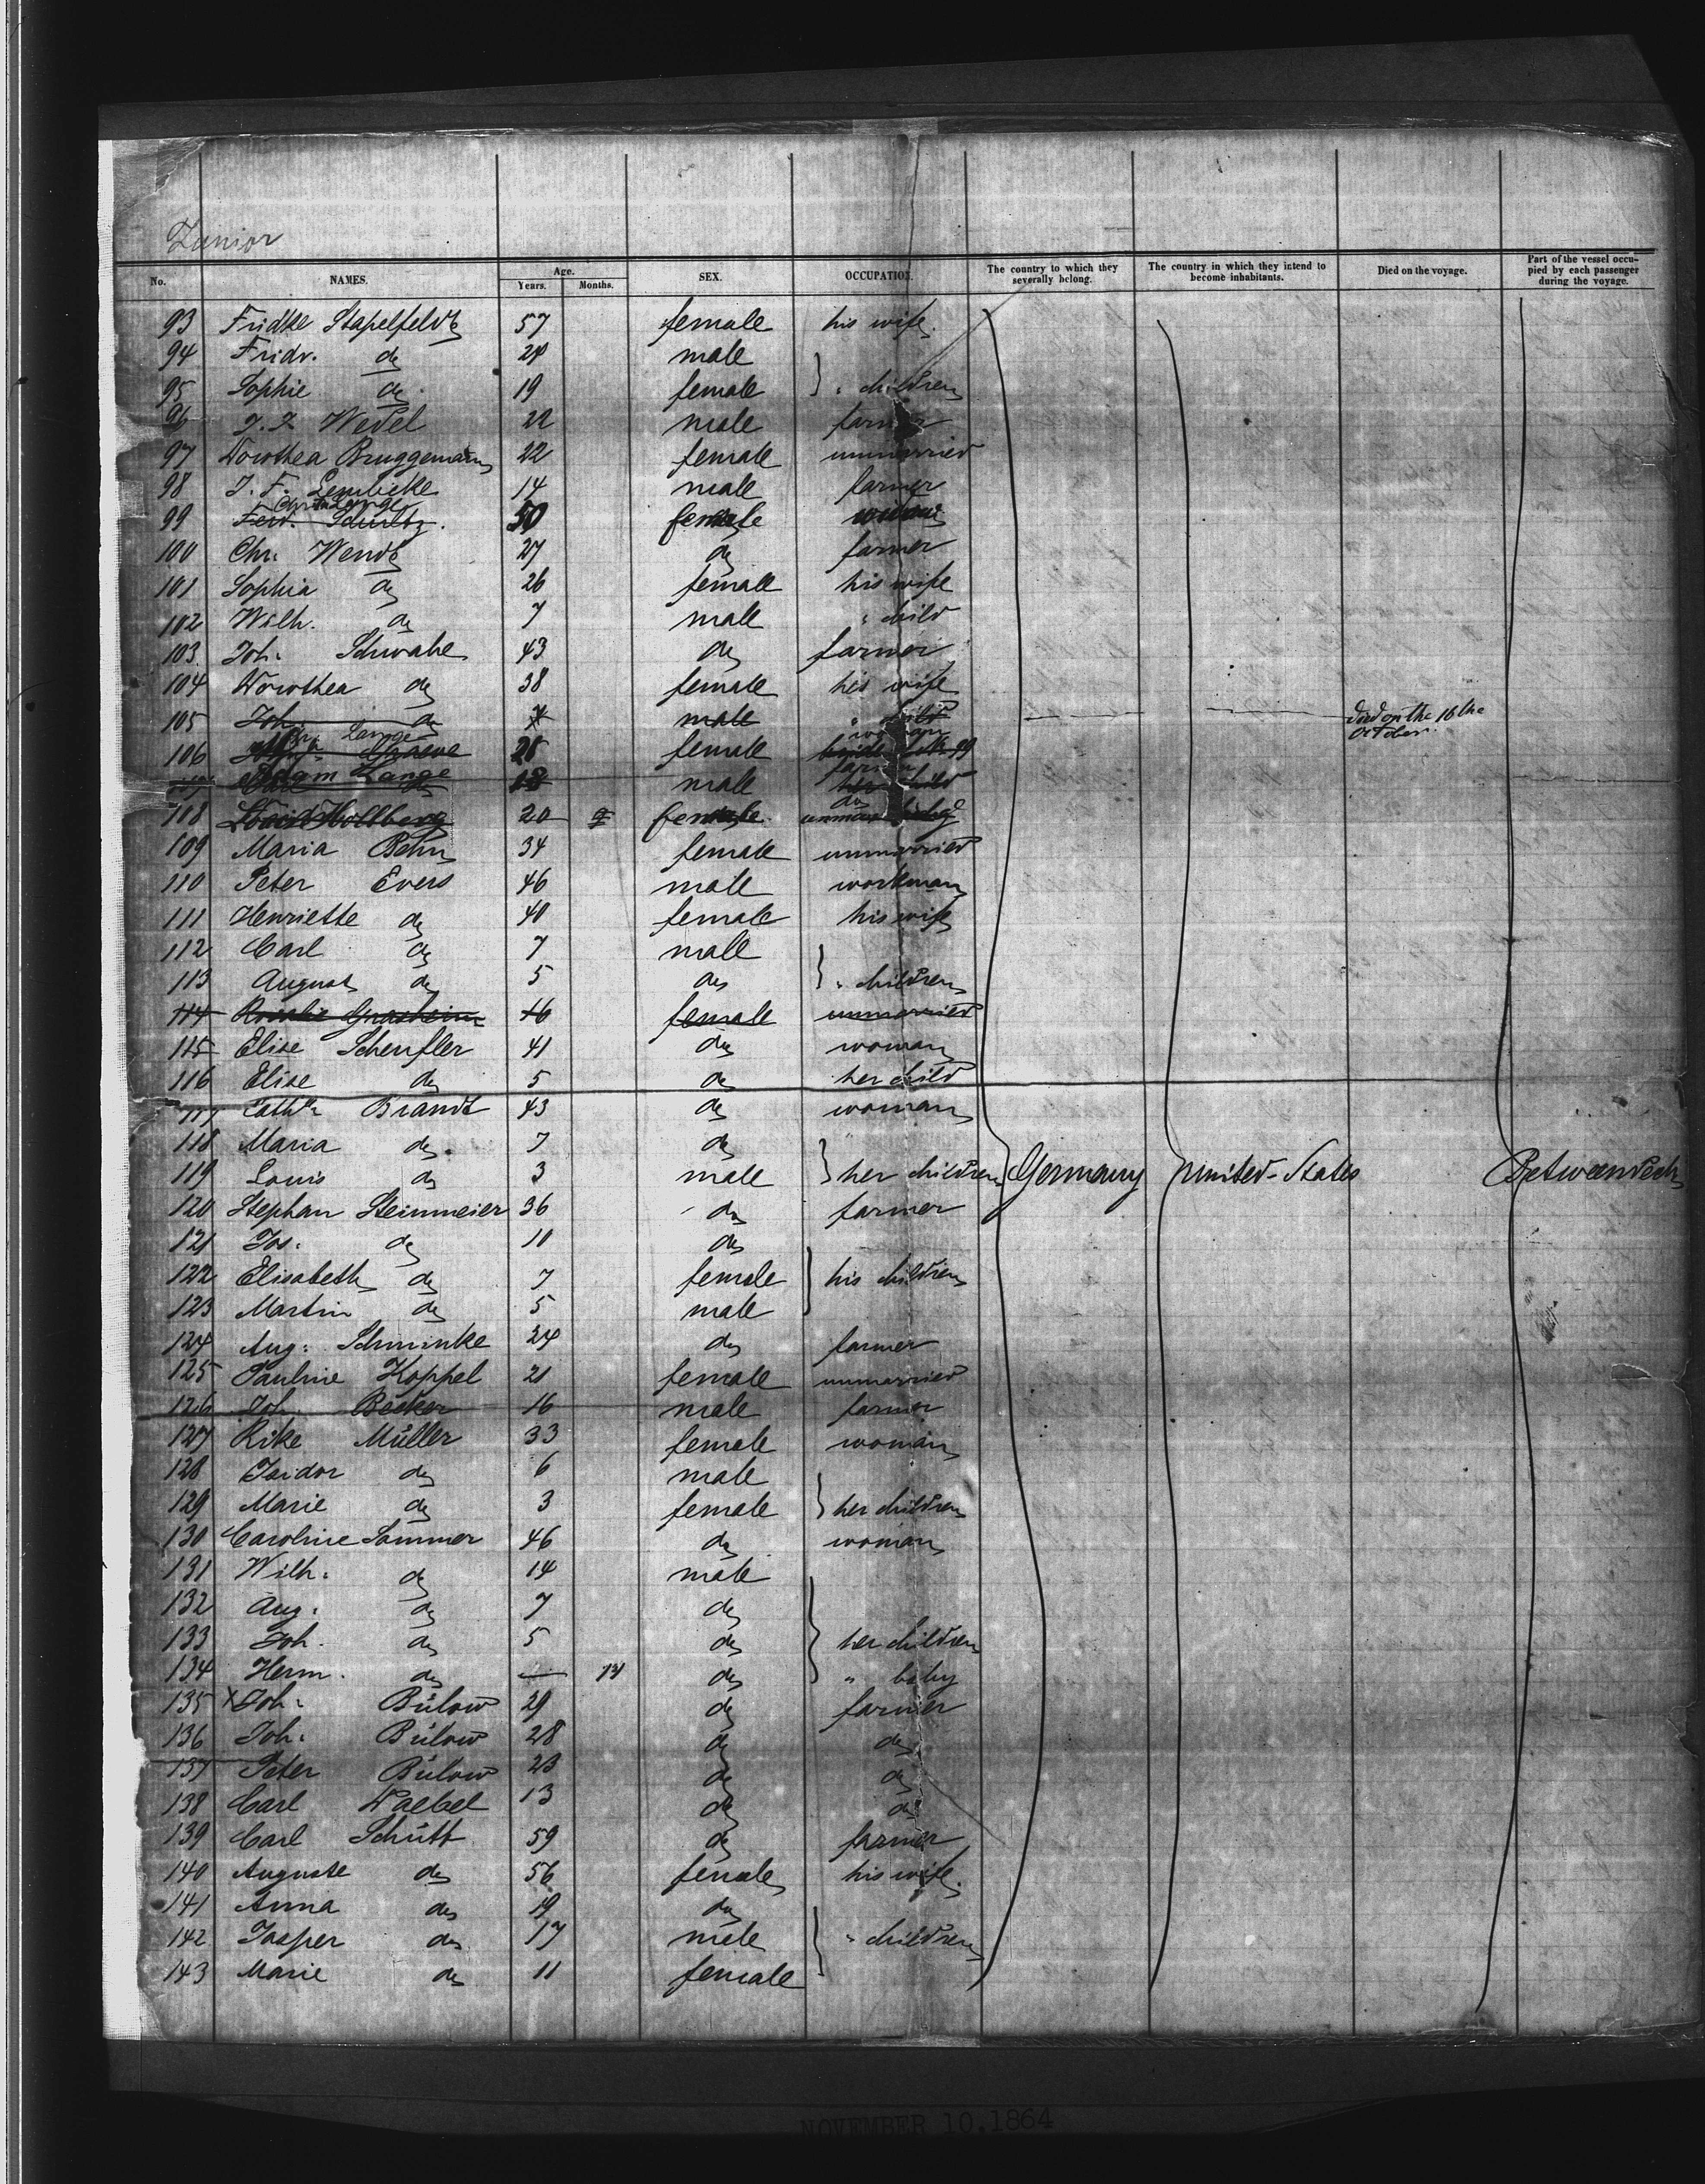 Junior
No. NAMES. Age. Years. Months. SEX. OCCUPATION. The country to which they severally belong. The country in which they intend to become inhabitants. Died on the voyage. Part of the vessel occupied by each passenger during the voyage.
93 Fridke Stapelfeldt 57 female his wife
94 Fridr. do 24 male
95 Sophie do 19 female " children
96 J. J. Wedel 22 male farmer
97 Dorothea Bruggemann 22 female unmarried
98 J. F. Lembcke 14 male farmer
Lange
99 Ferd. Schultz. 50 female
100 Chr. Wendt 27 do farmer
101 Sophia do 26 female his wife
102 Wilh. do 7 male " child
103. Joh. Schwabe 43 do farmer
104 Dorothea do 38 female his wife
105 Joh. do male " child died on the 16 the October.
Lange
106 female
Lange male her child
108 Hollberg 20 female
109 Maria Behn 34 female unmarried
110 Peter Evers 46 male workman
111 Henriette do 40 female his wife
112 Carl do 7 male
113 August do 5 do " children
114 16 female unmarried
115 Elise Scheufler 41 do woman
116 Elise do 5 do her child
117 Cathr Brandt 43 do woman
118 Maria do. 7 do
119 Louis do 3 male her children Germany United-States Betweendeck
120 Stephan Steinmeier 36 do farmer
121 Jos. do 11 do
122 Elisabeth do 7 female his children
123 Martin do 5 male
124 Aug: Schminke 24 do farmer
125 Pauline Koppel 21 female unmarried
126 Joh. Becker 16 male farmer
127 Rike Müller 33 female woman
128 Isidor do 6 male
129 Marie do 3 female her children
130 Caroline Sommer 46 do woman
131 Wilh. do 14 male
132 Aug. do 7 do
133 Joh. do 5 do her children
134 Herm. do — do " baby
135 x Joh. Bülow 29 do farmer
136 Joh. Bülow 28 do do
137 Peter Bülow 23 do do
138 Carl 13 do do
139 Carl Schütt 59 do farmer
140 Auguste do 56 female his wife.
141 Anna do 19 do
142 Jasper do 17 male " children
143 Marie do 11 female
NOVEMBER 10, 1864